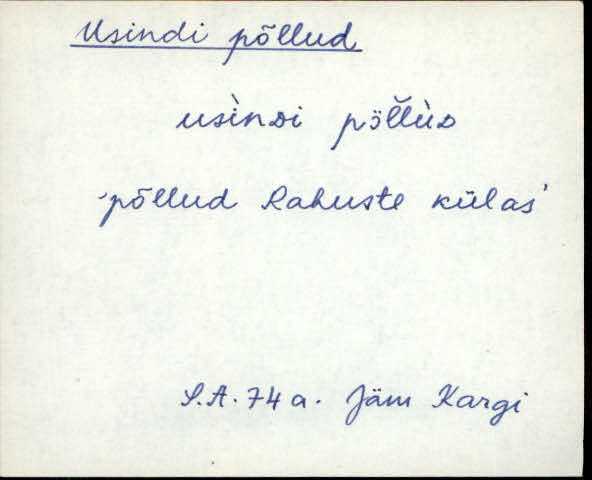 Usindi põllud
usìnᴅi põl̆lùᴅ
'põllud Rahuste külas'
S.A. 74 a. Jäm Kargi